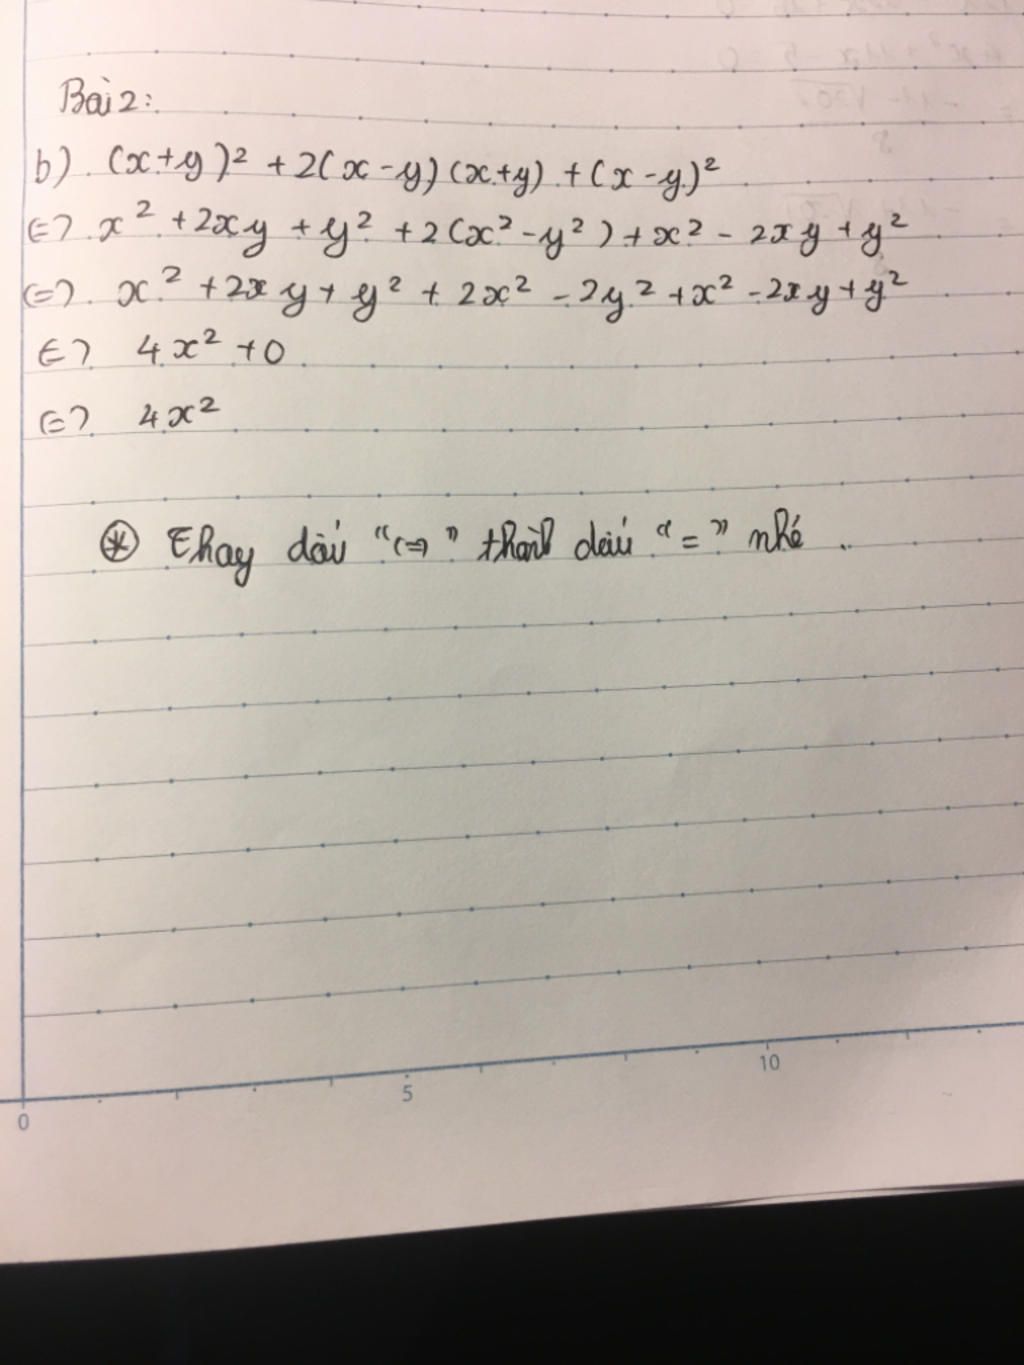 Bài 2:
b) (x+y)² + 2(x-y)(x+y) + (x-y)²
<=> x² + 2xy + y² + 2(x²-y²) + x² - 2xy + y²
<=> x² + 2xy + y² + 2x² - 2y² + x² - 2xy + y²
<=> 4x² + 0
<=> 4x²
* Thay dấu "<=>" thành dấu "=" nhé.
0
5
10